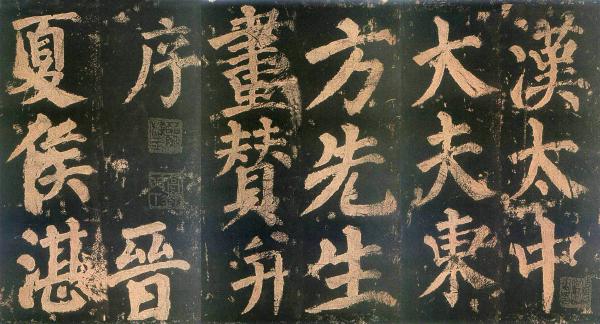 漢太中
大夫東
方先生
畫賛并
序 晉
夏侯湛